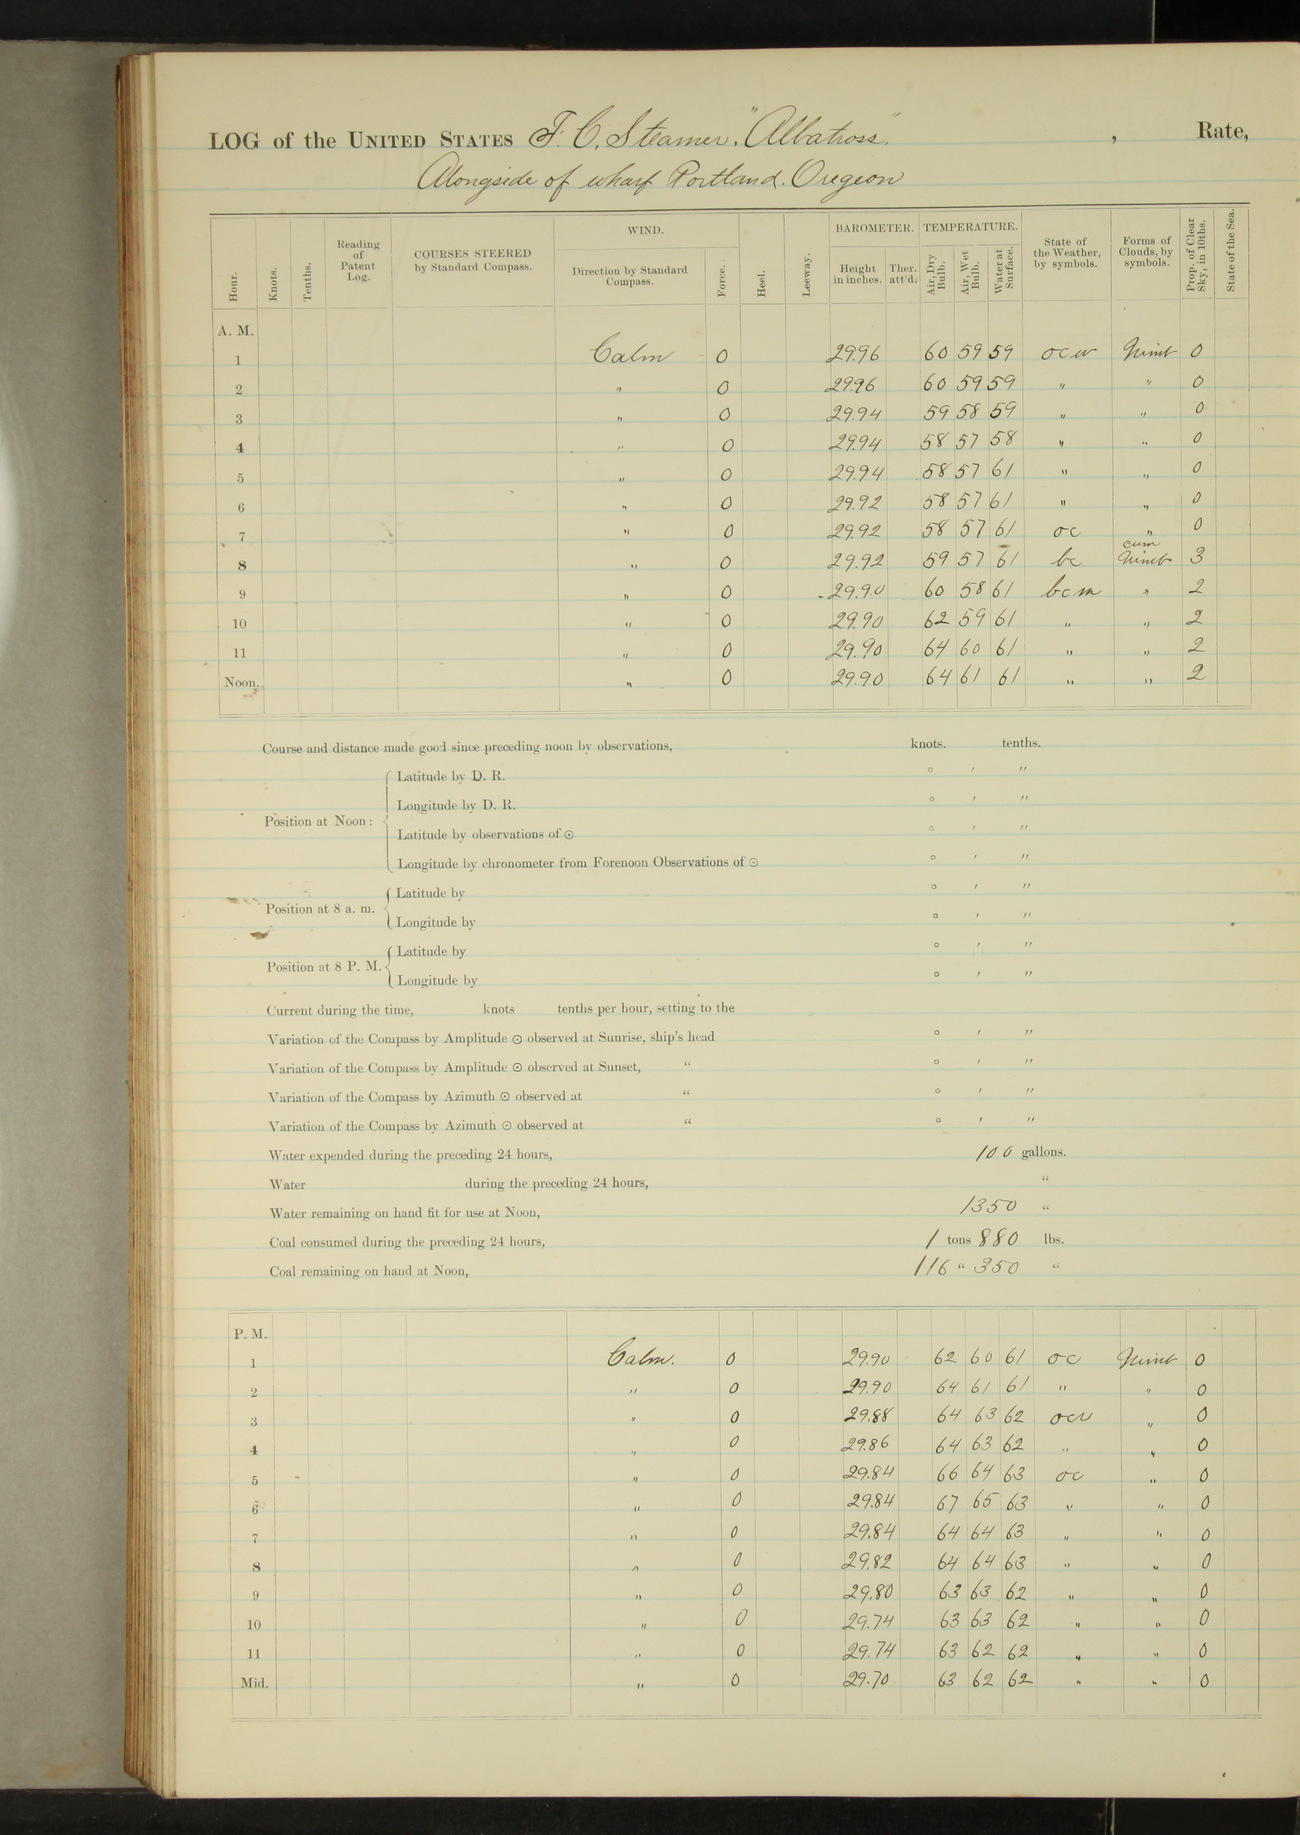 LOG of the UNITED STATES F. C. Steamer. "Albatross" , Rate,
Alongside of wharf Portland. Oregeon
Hour. Knots. Tenths. Reading of Patent Log. COURSES STEERED by Standard Compass. WIND. Direction by Standard Compass. Force. Heel. Leeway. BAROMETER. Height in inches. Ther. att'd. TEMPERATURE. Air, Dry Bulb. Air, Wet Bulb. Water at Surface. State of the Weather, by symbols. Forms of Clouds, by symbols. Prop. of Clear Sky, in 10ths. State of the Sea.
A. M.
1 Calm 0 29.96 60 59 59 ocu Nimb 0
2 " 0 29.96 60 59 59 " " 0
3 " 0 29.94 59 58 59 " " 0
4 " 0 29.94 58 57 58 " " 0
5 " 0 29.94 58 57 61 " " 0
6 " 0 29.92 58 57 61 " " 0
7 " 0 29.92 58 57 61 oc " 0
8 " 0 29.92 59 57 61 bc cum Nimb 3
9 " 0 29.90 60 58 61 bcm " 2
10 " 0 29.90 62 59 61 " " 2
11 " 0 29.90 64 60 61 " " 2
Noon. " 0 29.90 64 61 61 " " 2
Course and distance made good since preceding noon by observations, knots. tenths.
Latitude by D. R. ° ′ ″
Longitude by D. R. ° ′ ″
Position at Noon:
Latitude by observations of ☉ ° ′ ″
Longitude by chronometer from Forenoon Observations of ☉ ° ′ ″
Latitude by ° ′ ″
Position at 8 a. m.
Longitude by ° ′ ″
Latitude by ° ′ ″
Position at 8 P. M.
Longitude by ° ′ ″
Current during the time, knots tenths per hour, setting to the
Variation of the Compass by Amplitude ☉ observed at Sunrise, ship's head ° ′ ″
Variation of the Compass by Amplitude ☉ observed at Sunset, " ° ′ ″
Variation of the Compass by Azimuth ☉ observed at " ° ′ ″
Variation of the Compass by Azimuth ☉ observed at " ° ′ ″
Water expended during the preceding 24 hours, 100 gallons.
Water during the preceding 24 hours, "
Water remaining on hand fit for use at Noon, 1350 "
Coal consumed during the preceding 24 hours, 1 tons 880 lbs.
Coal remaining on hand at Noon, 116 " 350 "
P. M.
1 Calm. 0 29.90 62 60 61 oc Nimb 0
2 " 0 29.90 64 61 61 " " 0
3 " 0 29.88 64 63 62 ocu " 0
4 " 0 29.86 64 63 62 " " 0
5 " 0 29.84 66 64 63 oc " 0
6 " 0 29.84 67 65 63 " " 0
7 " 0 29.84 64 64 63 " " 0
8 " 0 29.82 64 64 63 " " 0
9 " 0 29.80 63 63 62 " " 0
10 " 0 29.74 63 63 62 " " 0
11 " 0 29.74 63 62 62 " " 0
Mid. " 0 29.70 63 62 62 " " 0